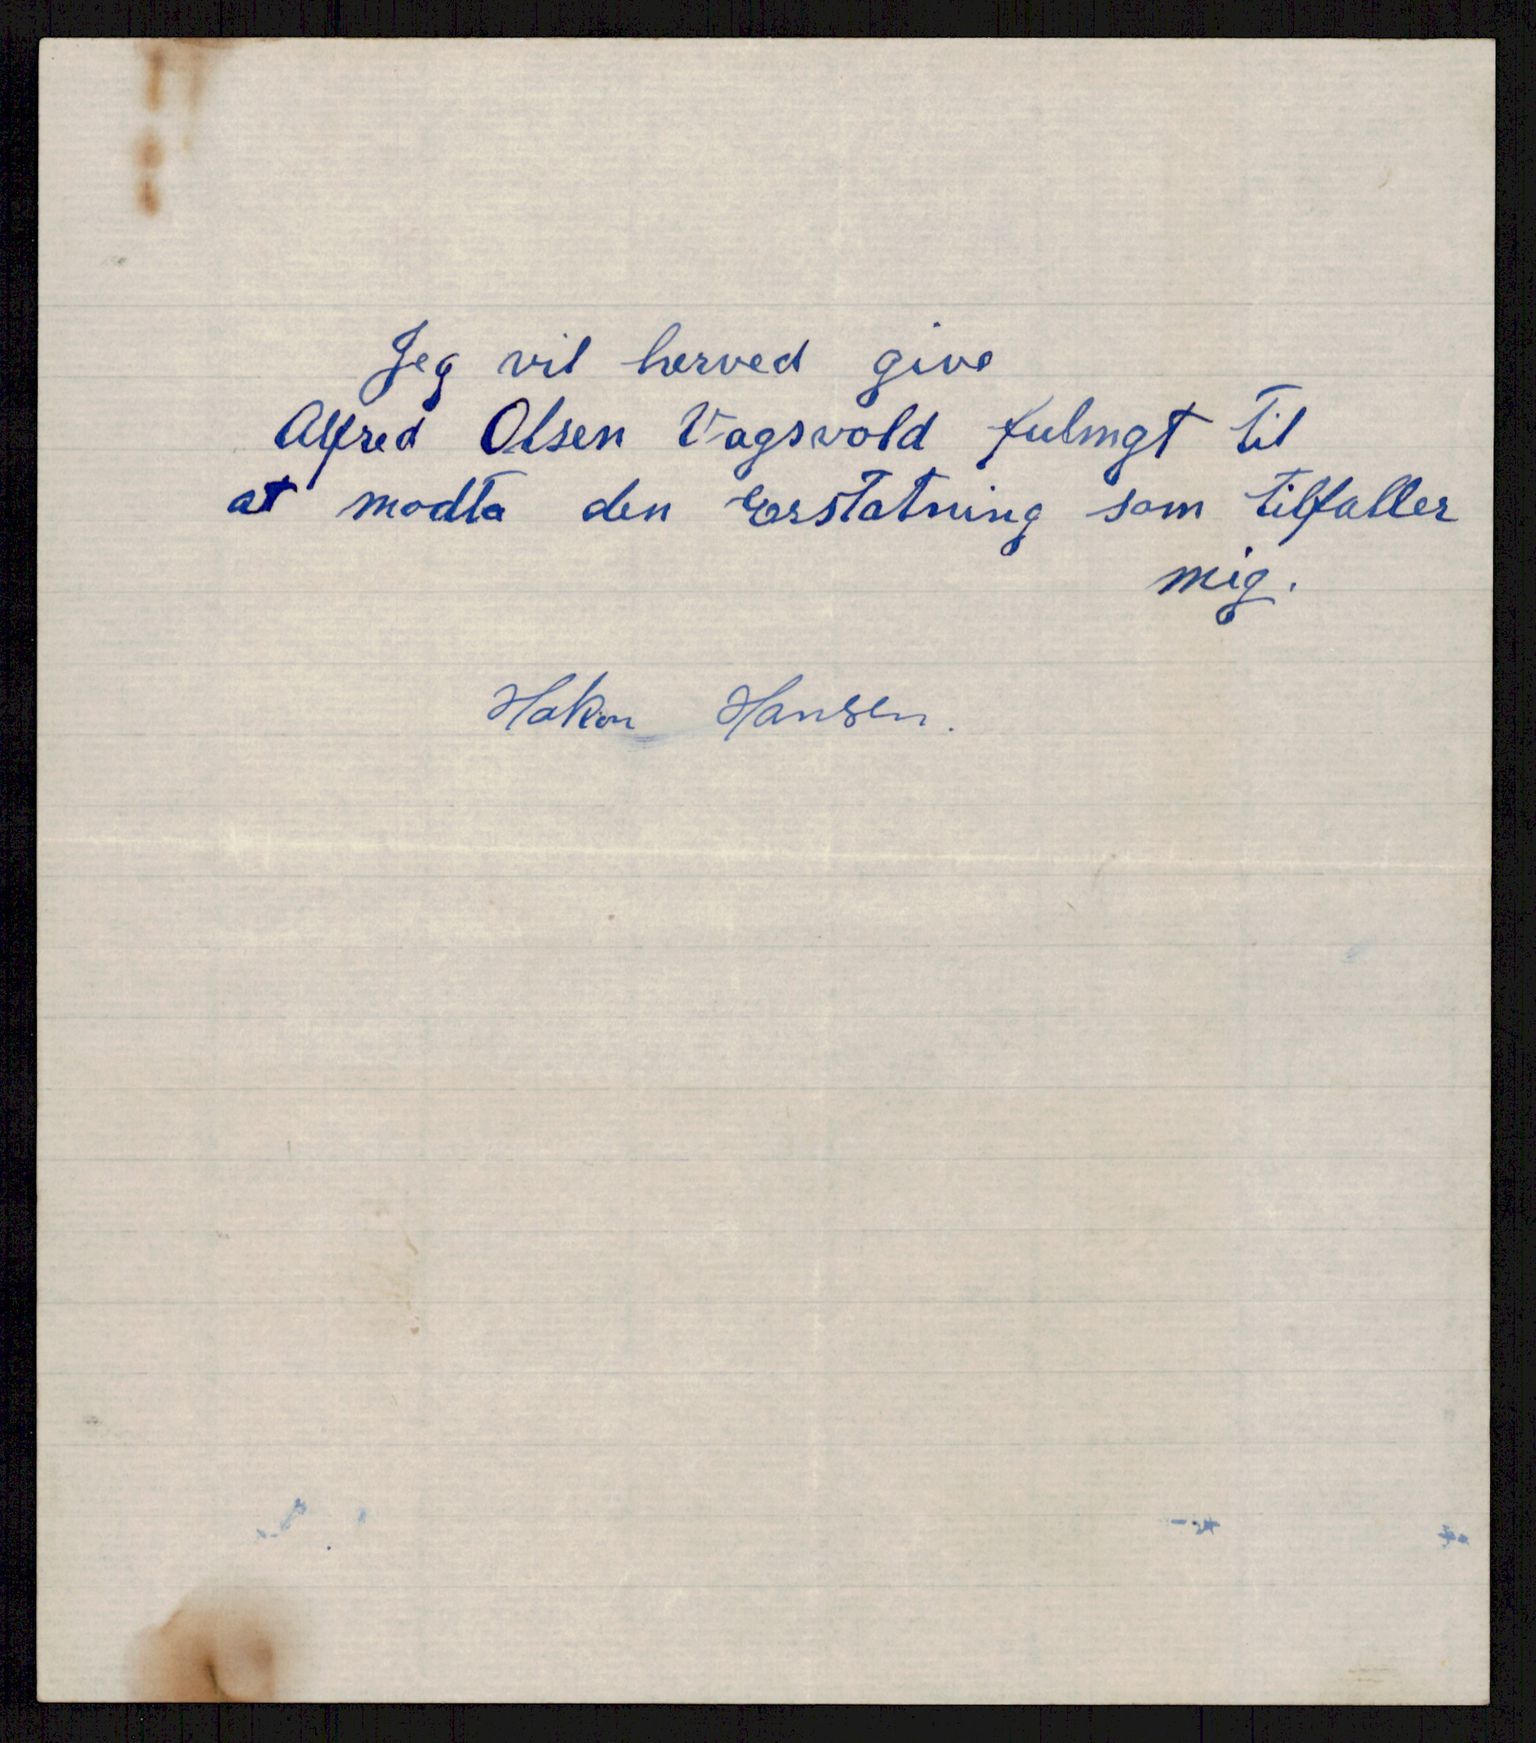 Jeg vil herved give
Alfred Olsen Vagsvold fulmgt til
at modta den Erstatning som tilfaller
mig.
Hakon Hansen.